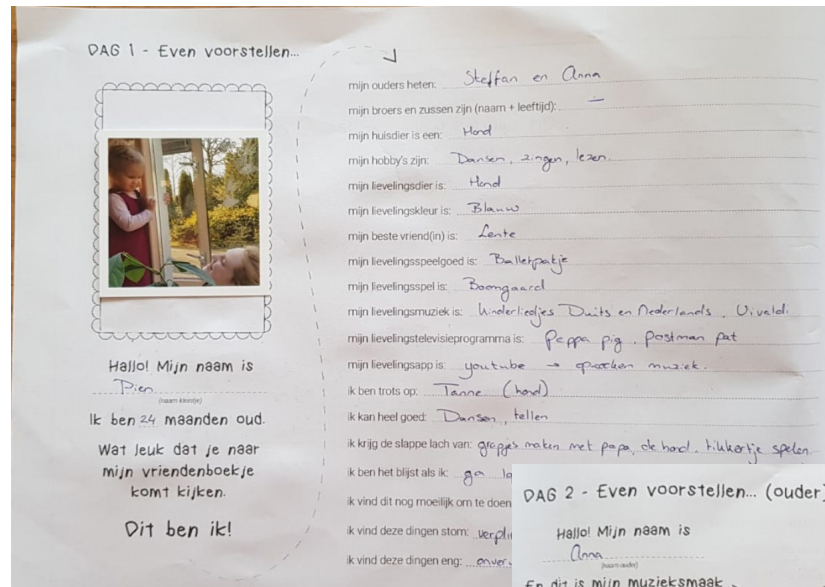 DAG 1 - Even voorstellen...
Hallo! Mijn naam is
Pien
(naam kleintje)
Ik ben 24 maanden oud.
Wat leuk dat je naar
mijn vriendenboekje
komt kijken.
Dit ben ik!
mijn ouders heten: Steffan en Anna
mijn broers en zussen zijn (naam + leeftijd): -
mijn huisdier is een: Hond
mijn hobby's zijn: Dansen, zingen, lezen.
mijn lievelingsdier is: Hond
mijn lievelingskleur is: Blauw
mijn beste vriend(in) is: Lente
mijn lievelingsspeelgoed is: Balletpakje
mijn lievelingsspel is: Boomgaard
mijn lievelingsmuziek is: Kinderliedjes Duits en Nederlands, Vivaldi
mijn lievelingstelevisieprogramma is: Peppa pig, Postman pat
mijn lievelingsapp is: youtube → muziek.
ik ben trots op: Tanne (hond)
ik kan heel goed: Dansen, tellen
ik krijg de slappe lach van: grapjes maken met papa, de hond, tikkertje spelen.
ik ben het blijst als ik: ga
ik vind dit nog moeilijk om te doen
ik vind deze dingen stom:
ik vind deze dingen eng:
DAG 2 - Even voorstellen... (ouder)
Hallo! Mijn naam is
Anna
(naam ouder)
En dit is mijn muzieksmaak